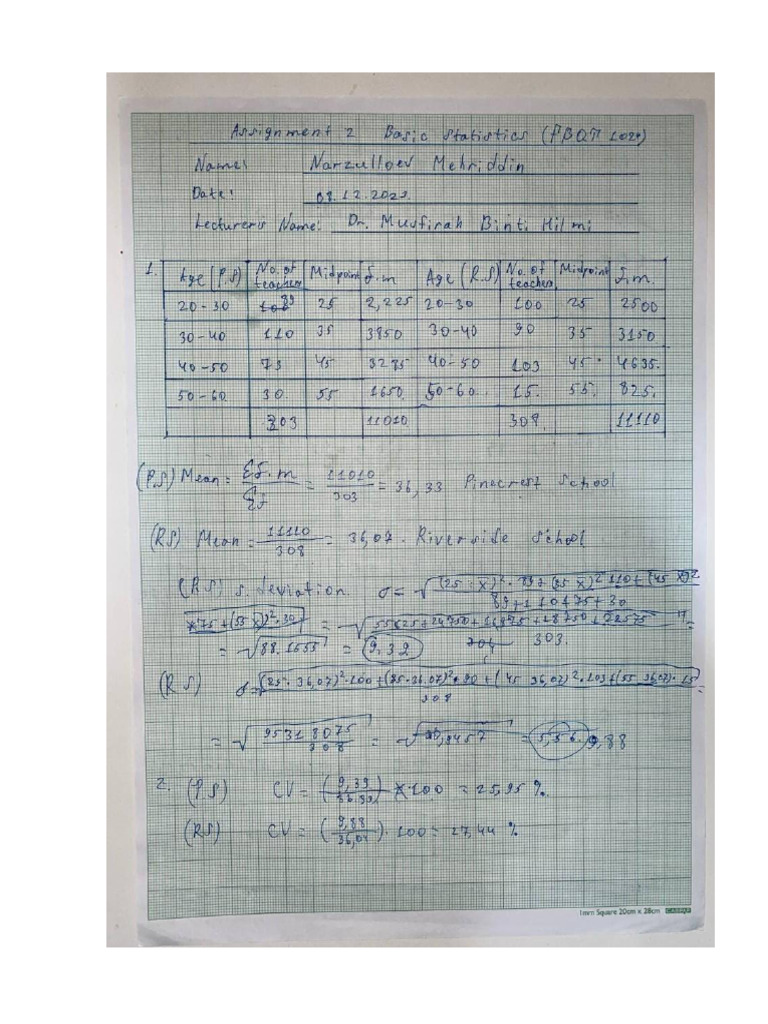 Assignment 2 Basic Statistics (FBQT 1024)
Name: Narzulloev Mehriddin
Date: 08.12.2023
Lecturer's Name: Dr. Musfirah Binti Hilmi
1. Age (P.S) No. of teachers Midpoint f.m Age (R.S) No. of teachers Midpoint f.m.
20-30 89 25 2,225 20-30 100 25 2500
30-40 110 35 3850 30-40 90 35 3150
40-50 73 45 3285 40-50 103 45 4635
50-60 30. 55 1650 50-60. 15. 55. 825.
303 11010 308. 11110
(P.S) Mean = Σf.m / Σf = 11010 / 303 = 36,33 Pinecrest School
(RS) Mean = 11110 / 308 = 36,07. Riverside School
(R.S) s. deviation σ = √
89+110+75+30
= √88.1655 = 9,32 303.
(R S) σ = √(25-36,07)²·100+
308
= √ 95318075 / 308 = √ = 5,56. 9,88
2. (P.S) CV = ( ) × 100 = 25,95 %
(RS) CV = (9,88 / 36,07) · 100 = 27,44 %
1mm Square 20cm x 28cm